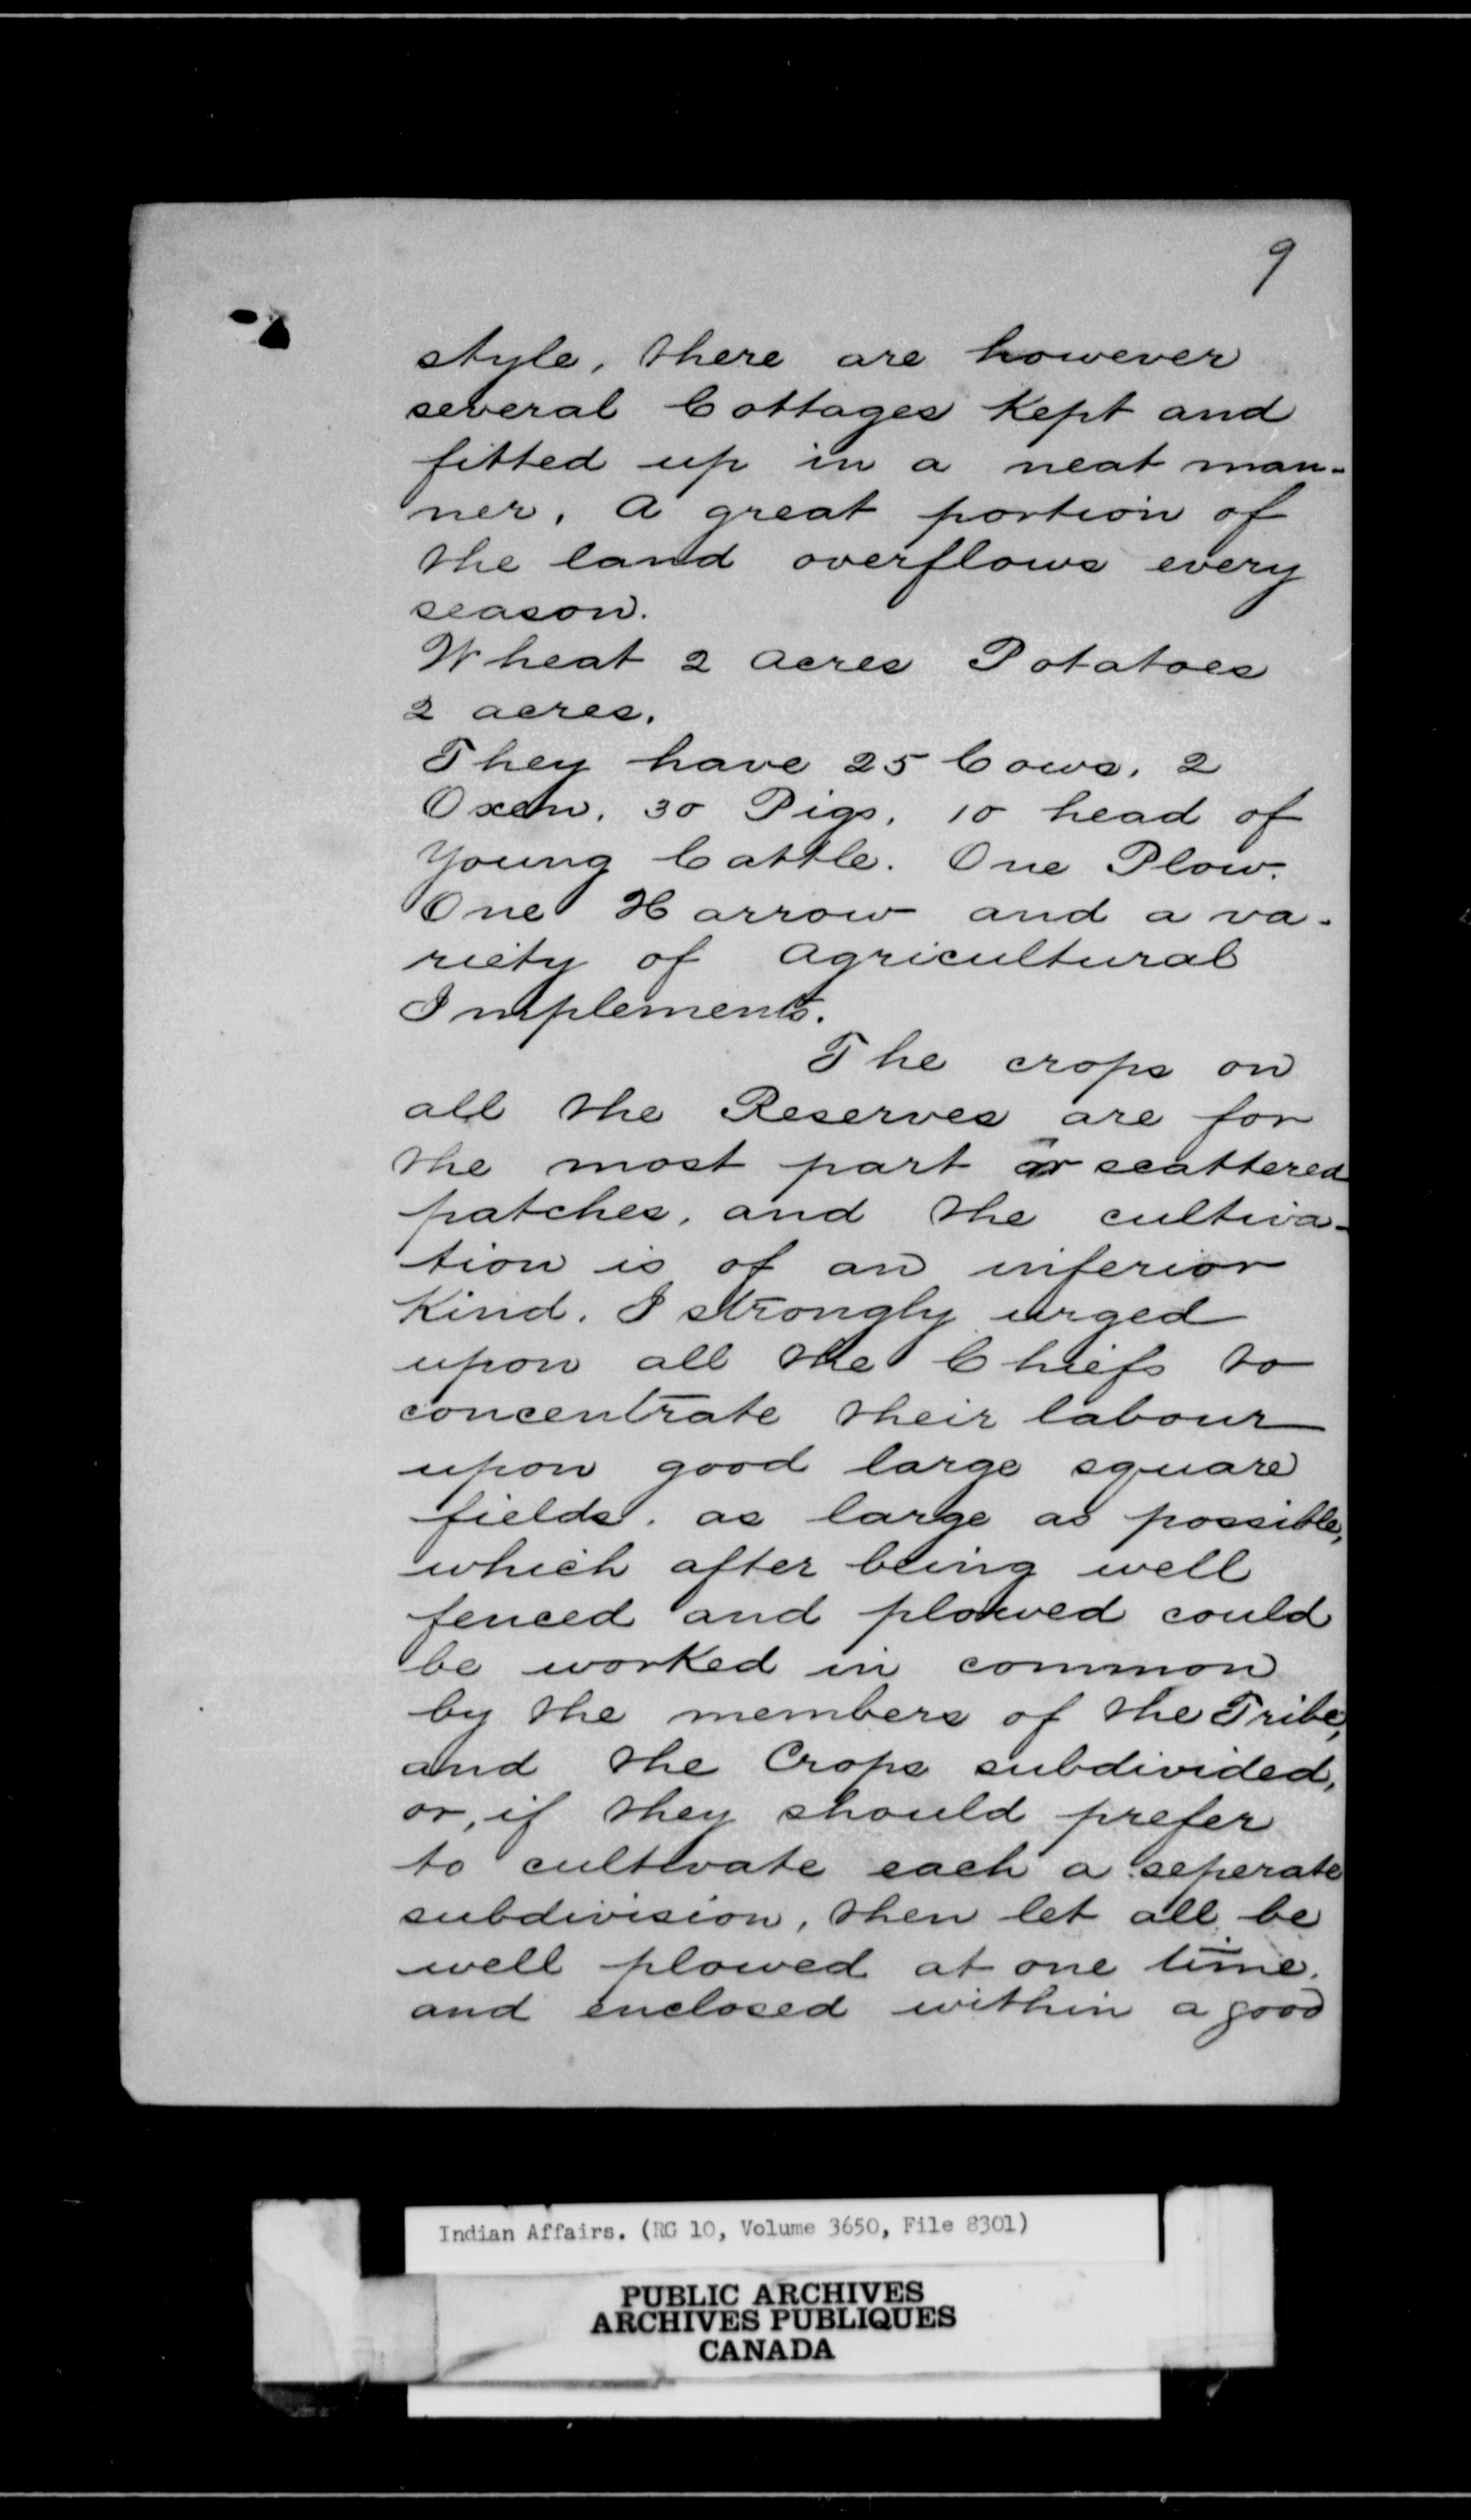 9
style, there are however
several Cottages Kept and
fitted up in a neat man-
ner, A great portion of
the land overflows every
season.
Wheat 2 acres Potatoes
2 acres.
They have 25 Cows, 2
Oxen, 30 Pigs, 10 head of
Young Cattle. One Plow.
One Harrow and a va-
riety of Agricultural
Implements.
The crops on
all the Reserves are for
the most part in scattered
patches, and the cultiva-
tion is of an inferior
Kind. I strongly urged
upon all the Chiefs to
concentrate their labour
upon good large square
fields. as large as possible,
which after being well
fenced and plowed could
be worked in common
by the members of the Tribe,
and the Crops subdivided,
or, if they should prefer
to cultivate each a seperate
subdivision, then let all be
well plowed at one time.
and enclosed within a good
Indian Affairs. (RG 10, Volume 3650, File 8301)
PUBLIC ARCHIVES
ARCHIVES PUBLIQUES
CANADA